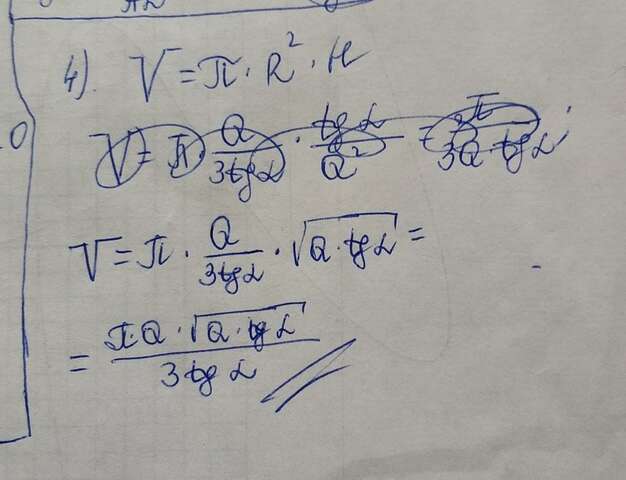 4). V = π · R² · H
V = π · Q/(3tgα) · tgα/Q² = π/(3Q · tgα)
V = π · Q/(3tgα) · √(Q · tgα) =
= (π · Q · √(Q · tgα))/(3tgα)